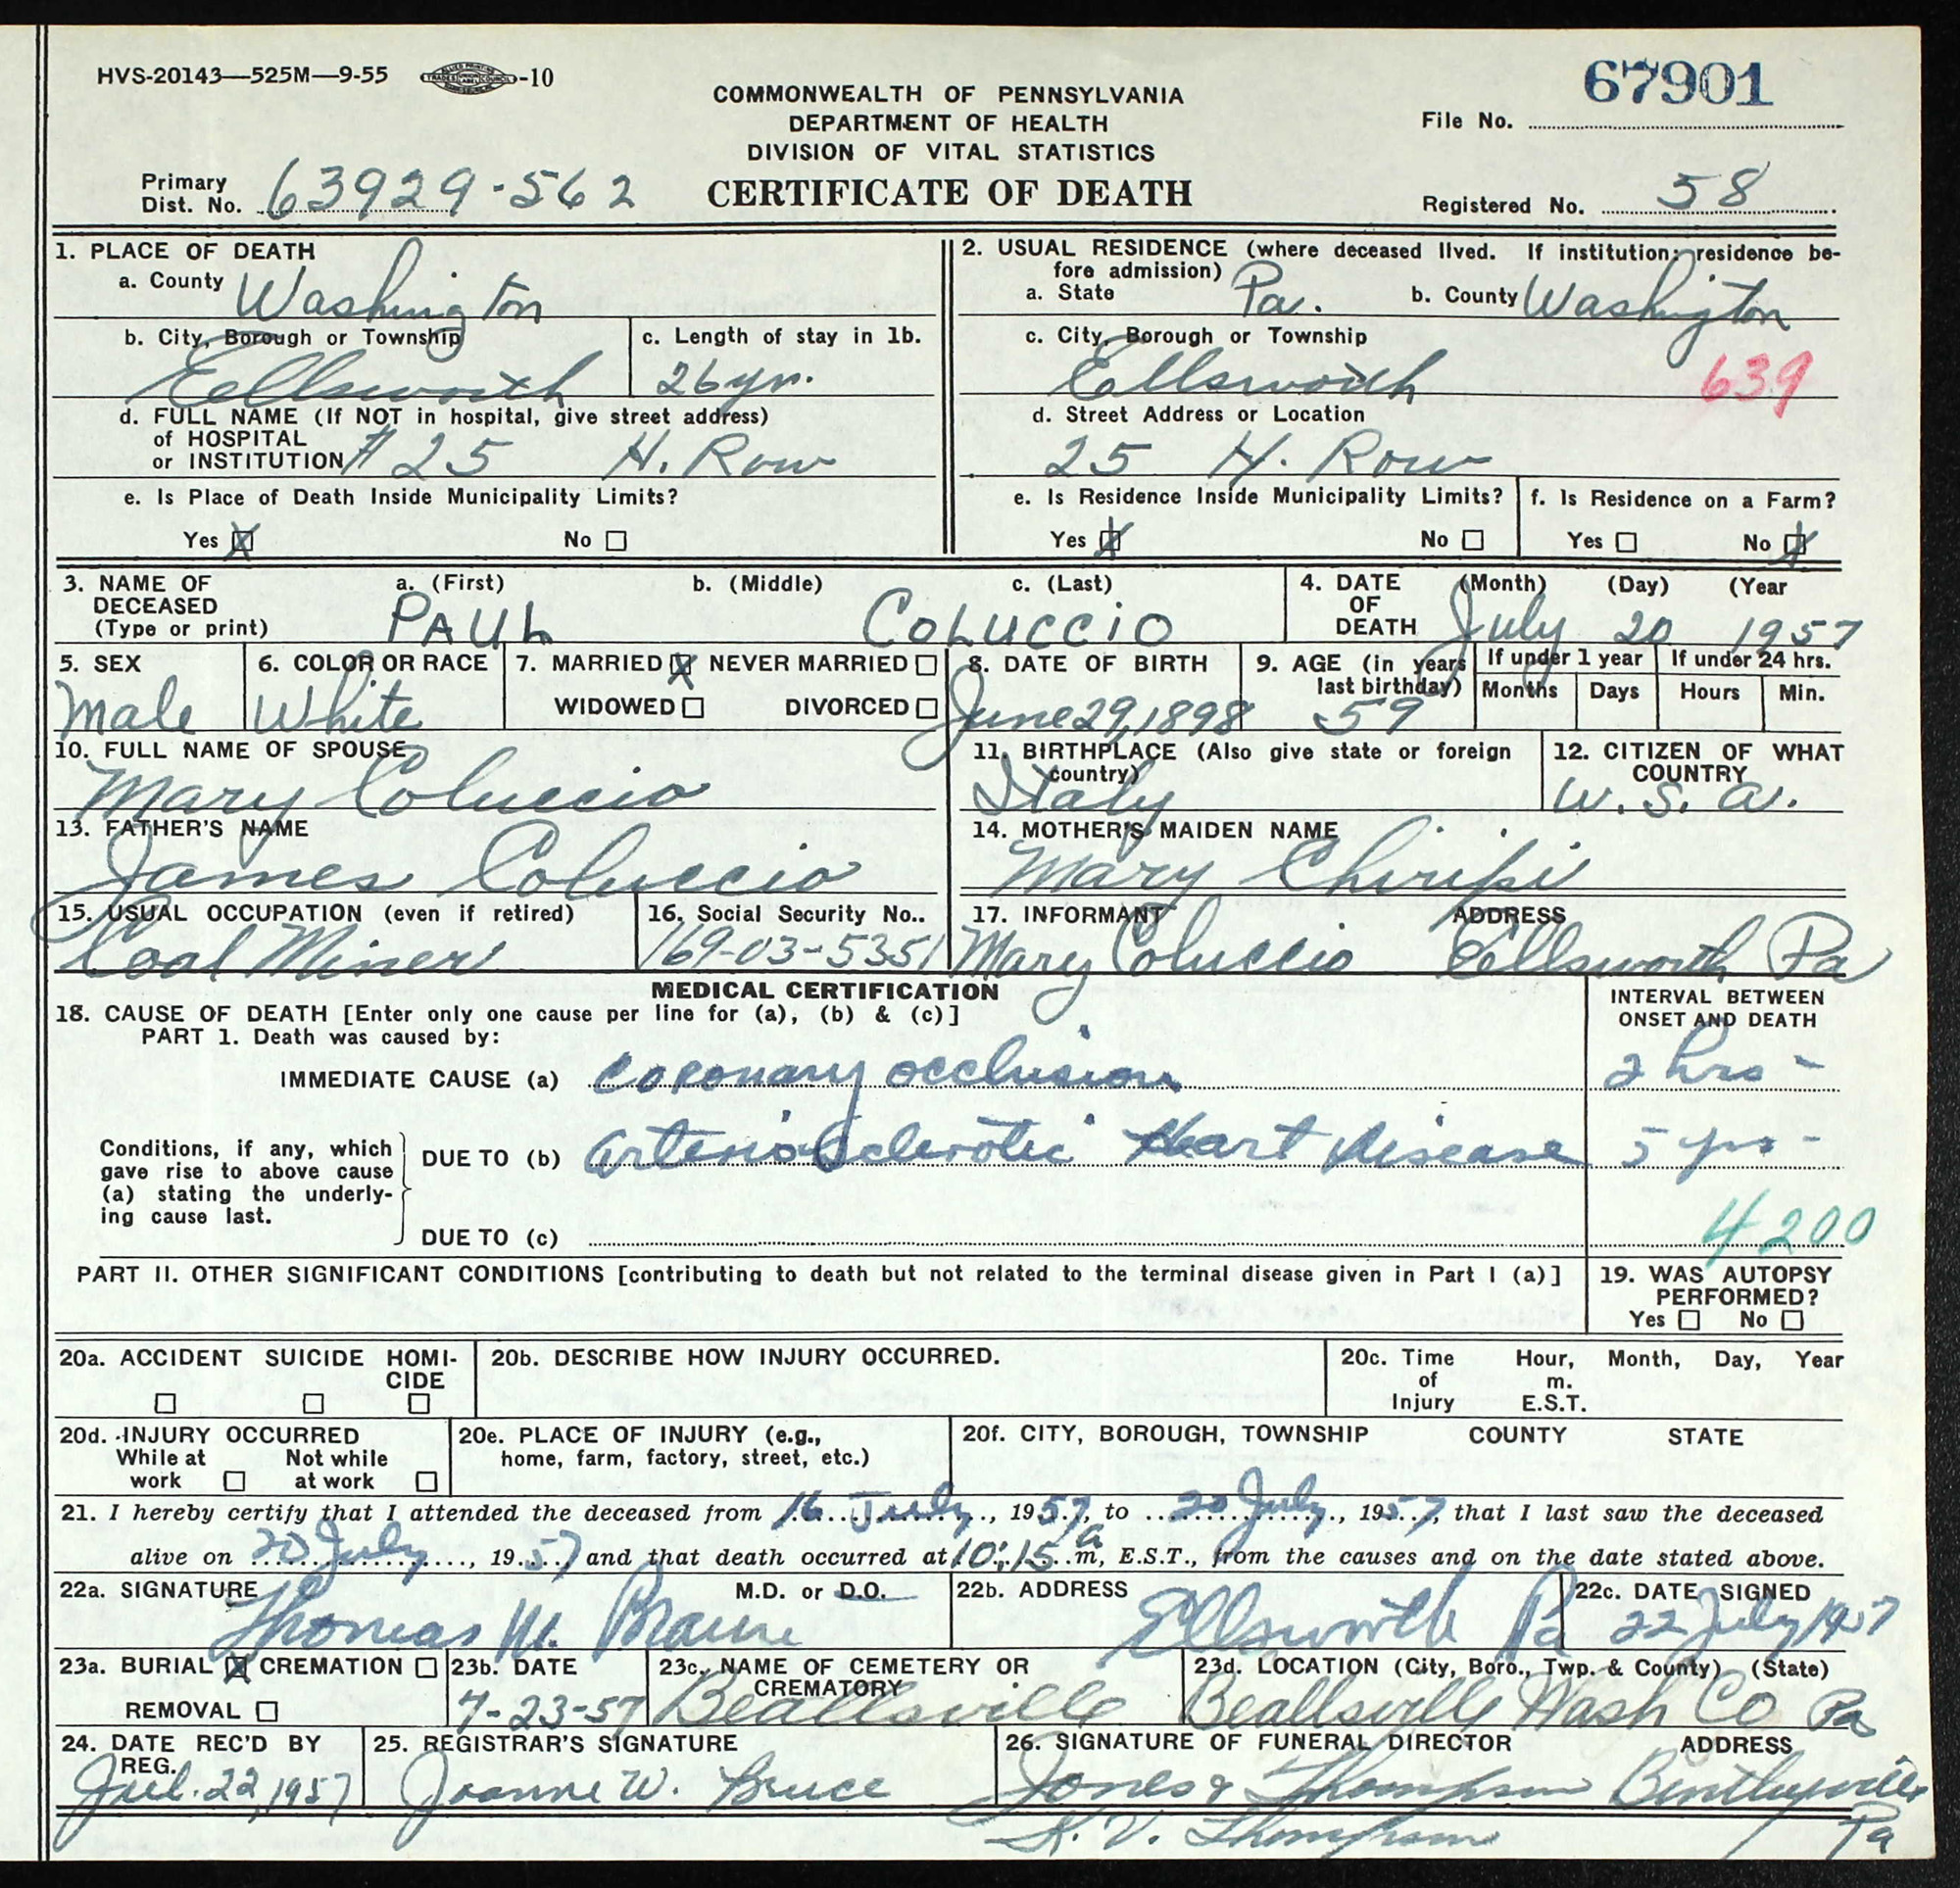 HVS-20143—525M—9-55 -10
67901
COMMONWEALTH OF PENNSYLVANIA
DEPARTMENT OF HEALTH
DIVISION OF VITAL STATISTICS
CERTIFICATE OF DEATH
File No.
Primary Dist. No. 63929-562
Registered No. 58
1. PLACE OF DEATH
a. County Washington
b. City, Borough or Township
Ellsworth
c. Length of stay in 1b.
26 yr.
d. FULL NAME (If NOT in hospital, give street address)
of HOSPITAL
or INSTITUTION # 25 H. Row
e. Is Place of Death Inside Municipality Limits?
Yes X No
2. USUAL RESIDENCE (where deceased lived. If institution: residence be-
fore admission)
a. State Pa. b. County Washington
c. City, Borough or Township
Ellsworth 639
d. Street Address or Location
25 H. Row
e. Is Residence Inside Municipality Limits?
Yes X No
f. Is Residence on a Farm?
Yes No X
3. NAME OF DECEASED (Type or print)
a. (First) b. (Middle) c. (Last)
PAUL COLUCCIO
4. DATE OF DEATH (Month) (Day) (Year
July 20 1957
5. SEX
Male
6. COLOR OR RACE
White
7. MARRIED X NEVER MARRIED
WIDOWED DIVORCED
8. DATE OF BIRTH
June 29, 1898
9. AGE (in years last birthday)
59
If under 1 year
Months Days
If under 24 hrs.
Hours Min.
10. FULL NAME OF SPOUSE
Mary Coluccio
11. BIRTHPLACE (Also give state or foreign country)
Italy
12. CITIZEN OF WHAT COUNTRY
U. S. A.
13. FATHER'S NAME
James Coluccio
14. MOTHER'S MAIDEN NAME
Mary Chiripi
15. USUAL OCCUPATION (even if retired)
Coal Miner
16. Social Security No..
169-03-5351
17. INFORMANT ADDRESS
Mary Coluccio Ellsworth Pa
MEDICAL CERTIFICATION
18. CAUSE OF DEATH [Enter only one cause per line for (a), (b) & (c)]
PART 1. Death was caused by:
INTERVAL BETWEEN
ONSET AND DEATH
IMMEDIATE CAUSE (a) coronary occlusion 2 hrs -
Conditions, if any, which
gave rise to above cause
(a) stating the underly-
ing cause last.
DUE TO (b) arteriosclerotic Heart Disease 5 yrs -
DUE TO (c)
4200
PART II. OTHER SIGNIFICANT CONDITIONS [contributing to death but not related to the terminal disease given in Part I (a)]
19. WAS AUTOPSY
PERFORMED?
Yes No
20a. ACCIDENT SUICIDE HOMI-
CIDE
20b. DESCRIBE HOW INJURY OCCURRED.
20c. Time of Injury Hour, m. E.S.T. Month, Day, Year
20d. INJURY OCCURRED
While at work Not while at work
20e. PLACE OF INJURY (e.g.,
home, farm, factory, street, etc.)
20f. CITY, BOROUGH, TOWNSHIP COUNTY STATE
21. I hereby certify that I attended the deceased from 16 July, 1957, to 20 July, 1957, that I last saw the deceased
alive on 20 July, 1957 and that death occurred at 10:15 a m, E.S.T., from the causes and on the date stated above.
22a. SIGNATURE M.D. or D.O.
Thomas M.
22b. ADDRESS
Ellsworth Pa
22c. DATE SIGNED
22 July 1957
23a. BURIAL X CREMATION
REMOVAL
23b. DATE
7-23-57
23c. NAME OF CEMETERY OR
CREMATORY
Beallsville
23d. LOCATION (City, Boro., Twp. & County) (State)
Beallsville Wash Co Pa
24. DATE REC'D BY
REG.
Jul. 22, 1957
25. REGISTRAR'S SIGNATURE
Joanne W. Bruce
26. SIGNATURE OF FUNERAL DIRECTOR ADDRESS
Jones & Thompson Bentleyville
K. V. Thompson Pa